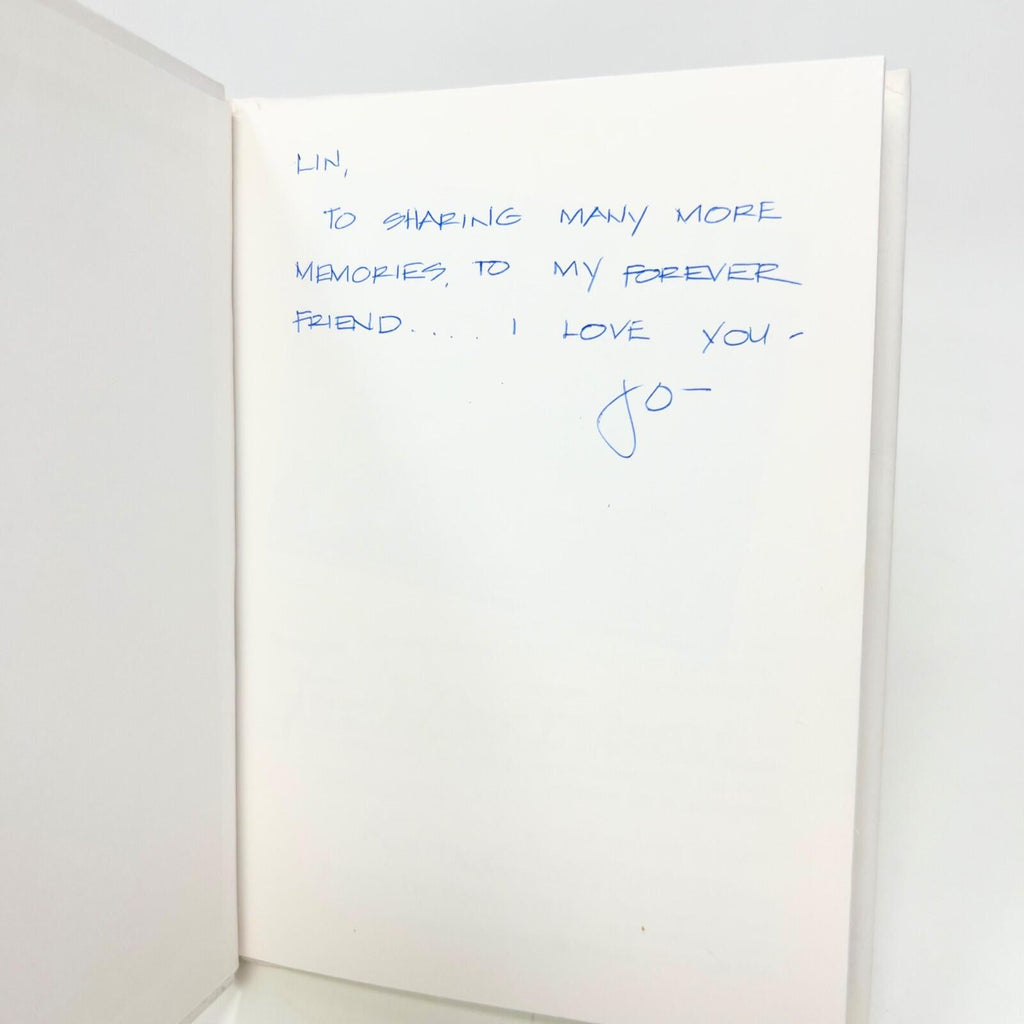 LIN,
TO SHARING MANY MORE
MEMORIES, TO MY FOREVER
FRIEND.... I LOVE YOU -
JO -